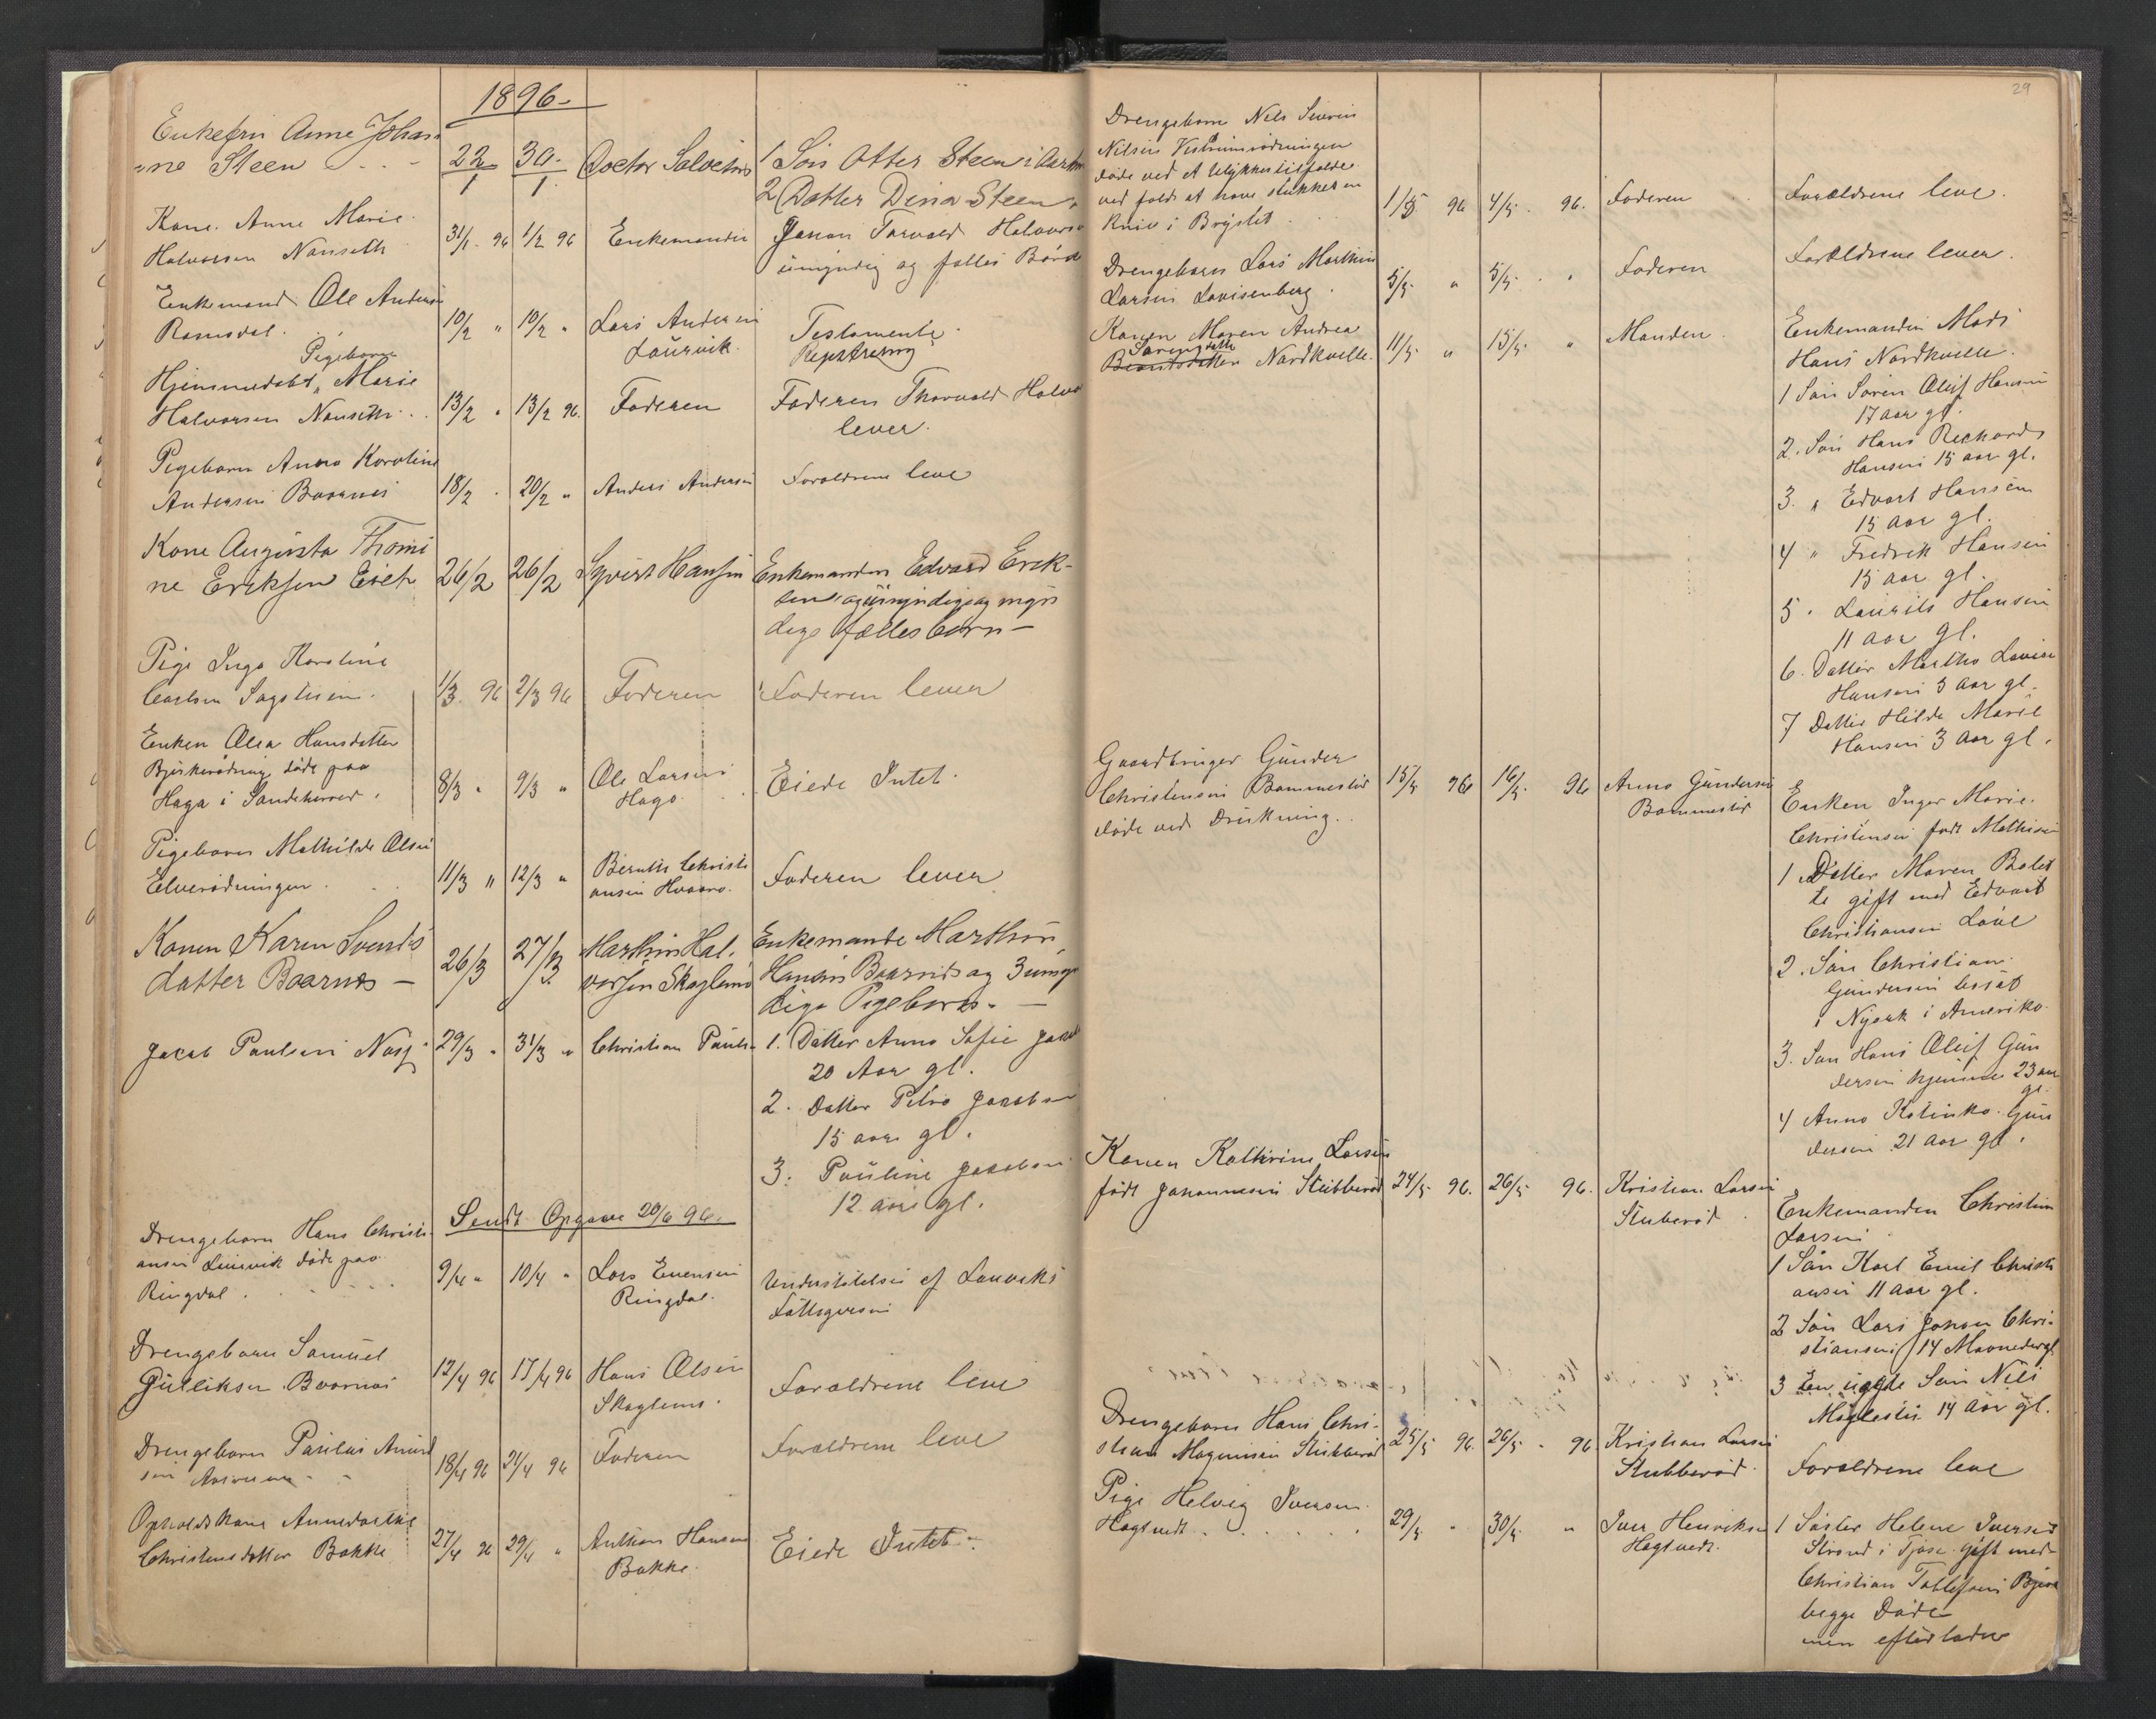 1896-
Enkefru Anne Johan
"ne Steen
22/1
30/1
Doctor Salvesen
1 Søn Otter Steen i
2 Datter Dina Steen
Kone. Anne Marie
Halvorsen Nanseth
31/1. 96
1/2 96
Enkemanden
Johan Torvald Halvors
umyndig og fælles Børn
Enkemand Ole Anders
Ramsdal.
10/2 "
10/2 "
Lars Andersen
Laurvik.
Testamente
Registrering
Pigebarn
Hjemmedøbt, Marie
Halvorsen Nanseth
13/2 "
13/2 96.
Faderen
Faderen Thorvald Halvo
lever.
Pigebarn Anna Karoline
Andersen Baarnes
18/2 .
20/2 "
Anders Andersen
Forældrene leve
Kone Augusta Thomi
ne Eriksen
26/2
26/2
Syvert Hansen
Enkemanden Edvard Erik-
sen og umyndige og myn
dige fælles børn -
Pige Inga Karoline
Carlsen
1/3. 96
2/3 96
Faderen
Faderen lever
Enken Olea Hansdatter
Bjerkerødning døde paa
Haga i Sandeherred.
8/3 "
9/3 "
Ole Larsen
Haga
Eiede Intet.
Pigebarn Mathilde Olsen
Elverødningen.
11/3 "
12/3 "
Bernth Christi
ansen
Faderen lever
Konen Karen Svends
datter Baarnes -
26/3
27/3
Marthin Hal.
vorsen Skaglund
Enkemande Marthin
Hansen Baarnes og 3 umyn
dige Pigebørn. -
Jacob Paulsen
29/3 "
31/3 "
Christian Pauls
1. Datter Anna Sofie Jacob
20 Aar gl.
2. Datter Petra Jacobsen
15 aar gl.
3. Pauline Jacobsen
12 aar gl.
Sendt Opgave 20/6 96.
Drengebarn Hans Christi
ansen Laurvik døde paa
Ringdal.
9/4 "
10/4 "
Lars Evensen
Ringdal.
Understøttelse af Laurviks
Fattigvesen
Drengebarn Samuel
Gulliksen Baarnes
12/4 96
17/4 96
Hans Olsen
Skaglund.
Forældrene leve
Drengebarn Paulus Amund
sen
18/4 96
21/4 96
Faderen
Forældrene leve
Opholdskone Annedorthe
Christensdatter Bakke
27/4 96
29/4 "
Anthon Hansen
Bakke.
Eiede Intet.
29
Drengebarn Nils Severin
Nilsen
døde ved et Ulykkestilfælde
ved fald at have stukket en
Kniv i Brystet.
1/5 96
4/5. 96.
Faderen
Forældrene leve.
Drengebarn Lars Marthin
Larsen Lovisenberg.
5/5 "
5/5. "
Faderen
Forældrene lever.
Konen Maren Andrea
Sørensdatter
Nordkvelle.
11/5 "
15/5. "
Manden.
Enkemanden Mads
Hans Nordkvelle.
1 Søn Søren Oluf Hansen
17 aar gl.
2. Søn Hans Rechard
Hansen 15 aar gl.
3. " Edvart Hansen
15 aar gl.
4 " Fredrik Hansen
15 aar gl.
5 " Laurits Hansen
11 aar gl.
6. Datter Martha Lovise
Hansen 5 Aar gl.
7 Datter Hilda Marie
Hansen 3 Aar gl.
Gaardbruger Gunder
Christensen Bommestad
døde ved Drukning.
15/5 96
16/5. 96
Anna Gundersen
Bommestad
Enken Inger Marie.
Christensen født Mathisen
1 Datter Maren Bolet
te gift med Edvart
Christiansen
2. Søn Christian
Gundersen bosat
i Nyørk i Amerika
3. Søn Hans Oluf Gun
dersen hjemme 23 aar
gl.
4 Anna Katinka Gun
dersen 21 Aar gl.
Konen Kathrine Larsen
født Johannesen Stubberød
24/5 96.
26/5 96.
Kristian Larsen
Stuberød.
Enkemanden Christian
Larsen
1 Søn Karl Emil Christi
ansen 11 aar gl.
2 Søn Lars Johan Chri-
stiansen 14 Maaneder gl
3 En Søn Nils
14 Aar gl.
Drengebarn Hans Chri-
stian Magnusen Stubberød
25/5 96.
26/5 " 96
Kristian Larsen
Stubberød.
Forældrene leve
Pige Helvig Iversen.
Hagtvedt
29/5 "
30/5. "
Iver Henriksen
Hagtvedt.
1 Søster Helene Iversen
Strand i Tjøse gift med
Christian
begge Døde
men efterlader